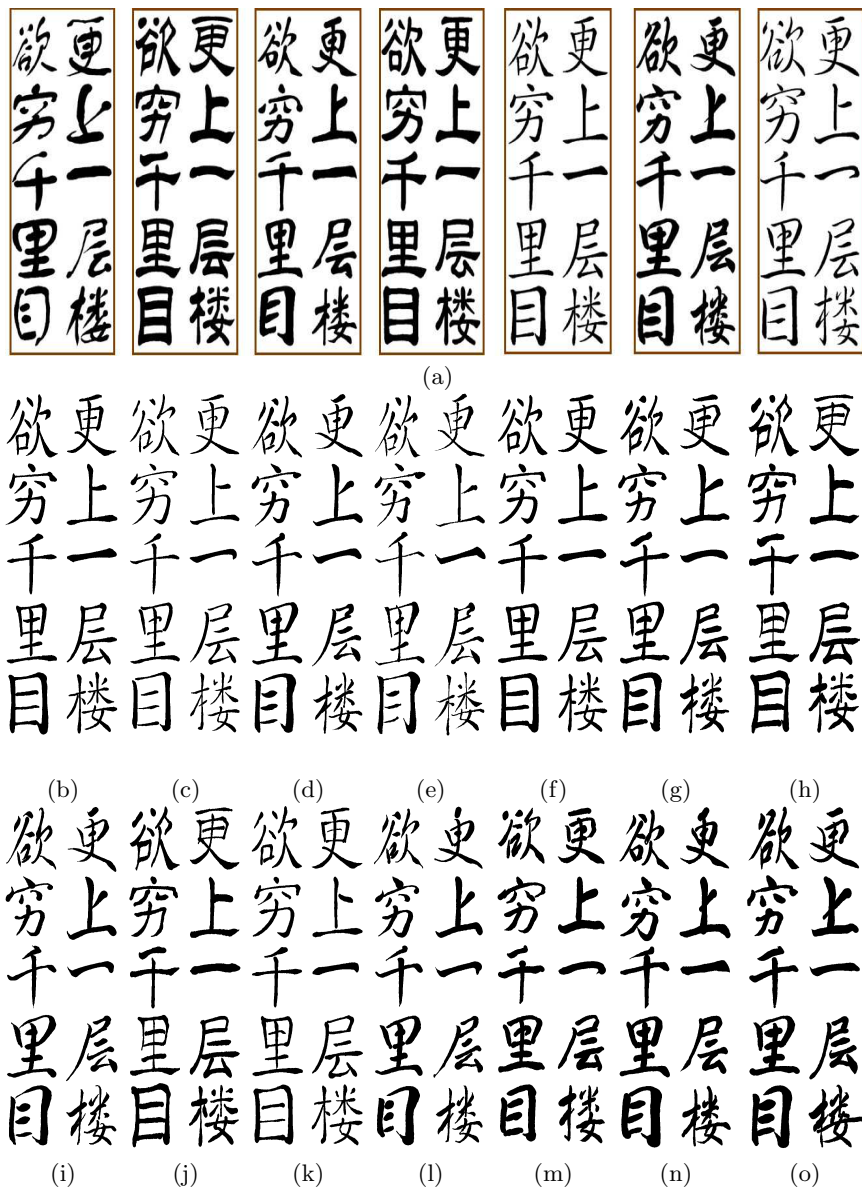 欲穷千里目
更上一层楼
欲穷千里目
更上一层楼
欲穷千里目
更上一层楼
欲穷千里目
更上一层楼
欲穷千里目
更上一层楼
欲穷千里目
更上一层楼
欲穷千里目
更上一层楼
(a)
欲穷千里目
更上一层楼
欲穷千里目
更上一层楼
欲穷千里目
更上一层楼
欲穷千里目
更上一层楼
欲穷千里目
更上一层楼
欲穷千里目
更上一层楼
欲穷千里目
更上一层楼
(b) (c) (d) (e) (f) (g) (h)
欲穷千里目
更上一层楼
欲穷千里目
更上一层楼
欲穷千里目
更上一层楼
欲穷千里目
更上一层楼
欲穷千里目
更上一层楼
欲穷千里目
更上一层楼
欲穷千里目
更上一层楼
(i) (j) (k) (l) (m) (n) (o)